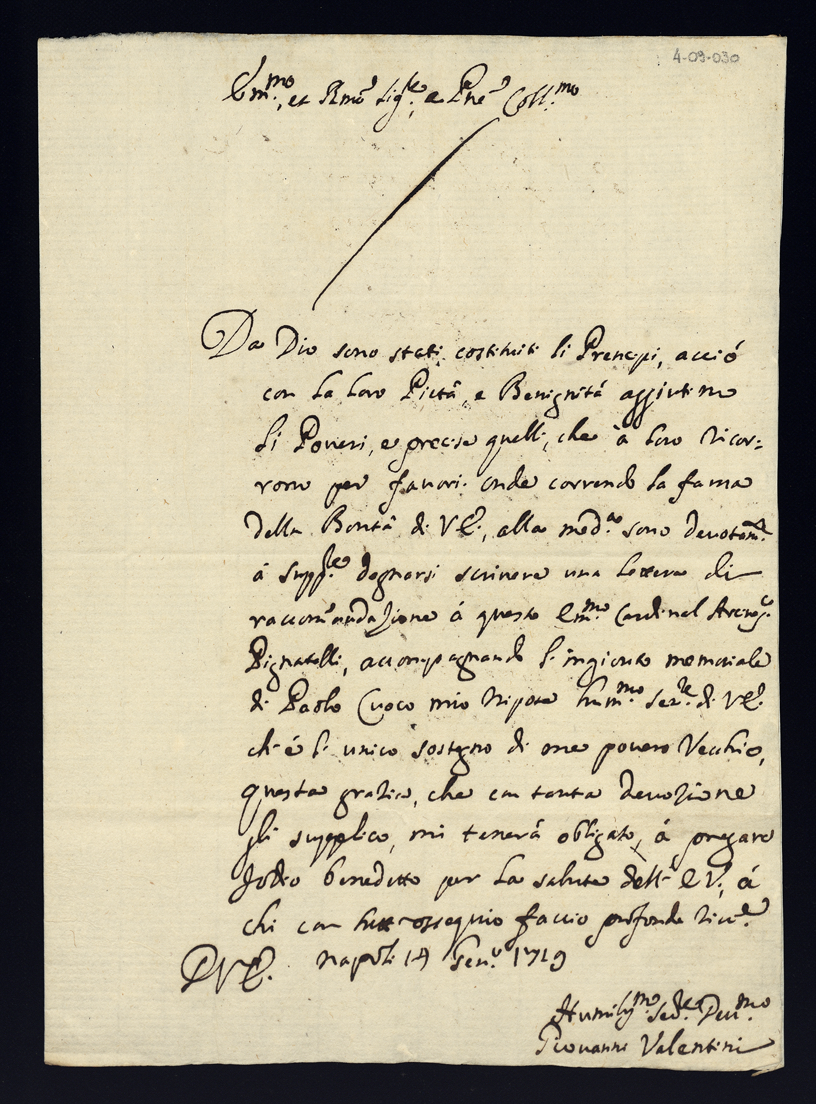 4-09-030
Em.mo, et Rmo Sig.re, e Pne Coll.mo
Da Dio sono stati costituiti li Prencipi, acciò
con la loro Pietà, e Benignità aggiutino
li Poveri, e precise quelli, che à loro ricor=
rono per favori. onde correndo la fama
della Bontà di V.E., alla med.a sono devotam.te
à supp.re degnarsi scrivere una lettera di
raccomandazione à questo Em.mo Cardinal Arciv.o
Pignatelli, accompagnando l'ingionto memoriale
di Paolo Cuoco mio Nipote hum.mo Ser.re di V.E.
ch'è l'unico sostegno di me povero Vecchio,
questa grazia, che con tanta devozione
gli supplico, mi tenerà obligato, à pregare
Iddio benedetto per la salute dell'E.V., à
chi con tutt'ossequio faccio profonda riv.a
D.V.E. Napoli 14 Gen.ro 1719
Humiliss.mo Ser.re Dev.mo
Giovanni Valentini